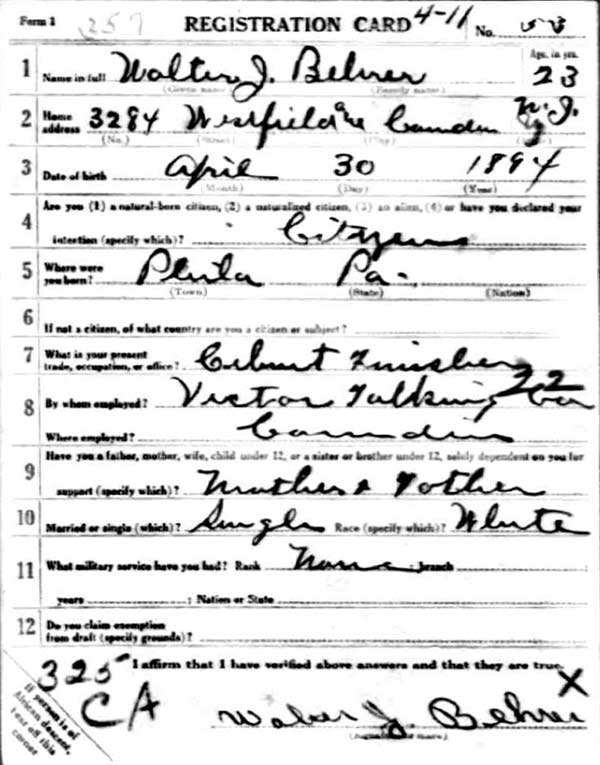 Form 1 257 REGISTRATION CARD 4-11 No. 53
1 Name in full Walter J. Behrer Age, in yrs. 23
(Given name) (Family name)
2 Home address 3284 Westfield ave Camden N.J.
(No.) (Street) (City) (State)
3 Date of birth April 30 1894
(Month) (Day) (Year)
4 Are you (1) a natural-born citizen, (2) a naturalized citizen, (3) an alien, (4) or have you declared your
intention (specify which)? Citizen
5 Where were you born? Phila Pa.
(Town) (State) (Nation)
6 If not a citizen, of what country are you a citizen or subject?
7 What is your present trade, occupation, or office? Cabinet Finisher
22
8 By whom employed? Victor Talking
Where employed? Camden
9 Have you a father, mother, wife, child under 12, or a sister or brother under 12, solely dependent on you for
support (specify which)? Mother & Father
10 Married or single (which)? Single Race (specify which)? White
11 What military service have you had? Rank None branch
years ; Nation or State
12 Do you claim exemption
from draft (specify grounds)?
325 I affirm that I have verified above answers and that they are true.
X
CA
Walter J. Behrer
(Signature or mark)
If person is of
African descent,
tear off this
corner